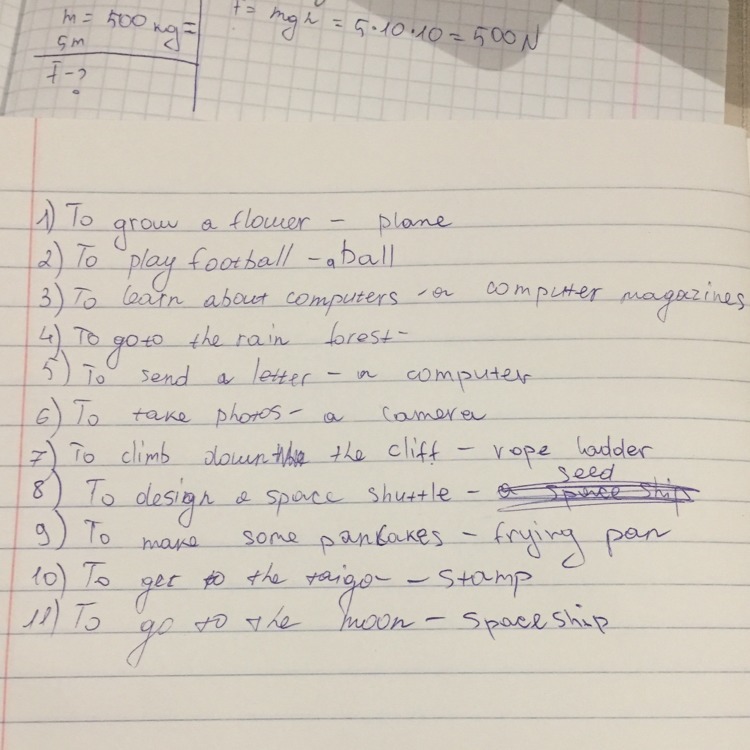 m = 500 kg =
5m
F - ?
F = mgh = 5·10·10 = 500N
1) To grow a flower - plane
2) To play football - a ball
3) To learn about computers - a computer magazines
4) To go to the rain forest -
5) To send a letter - a computer
6) To take photos - a camera
7) To climb down the cliff - rope ladder
seed
8) To design a space shuttle - a space ship
9) To make some pankakes - frying pan
10) To get to the taiga - stamp
11) To go to the moon - spaceship